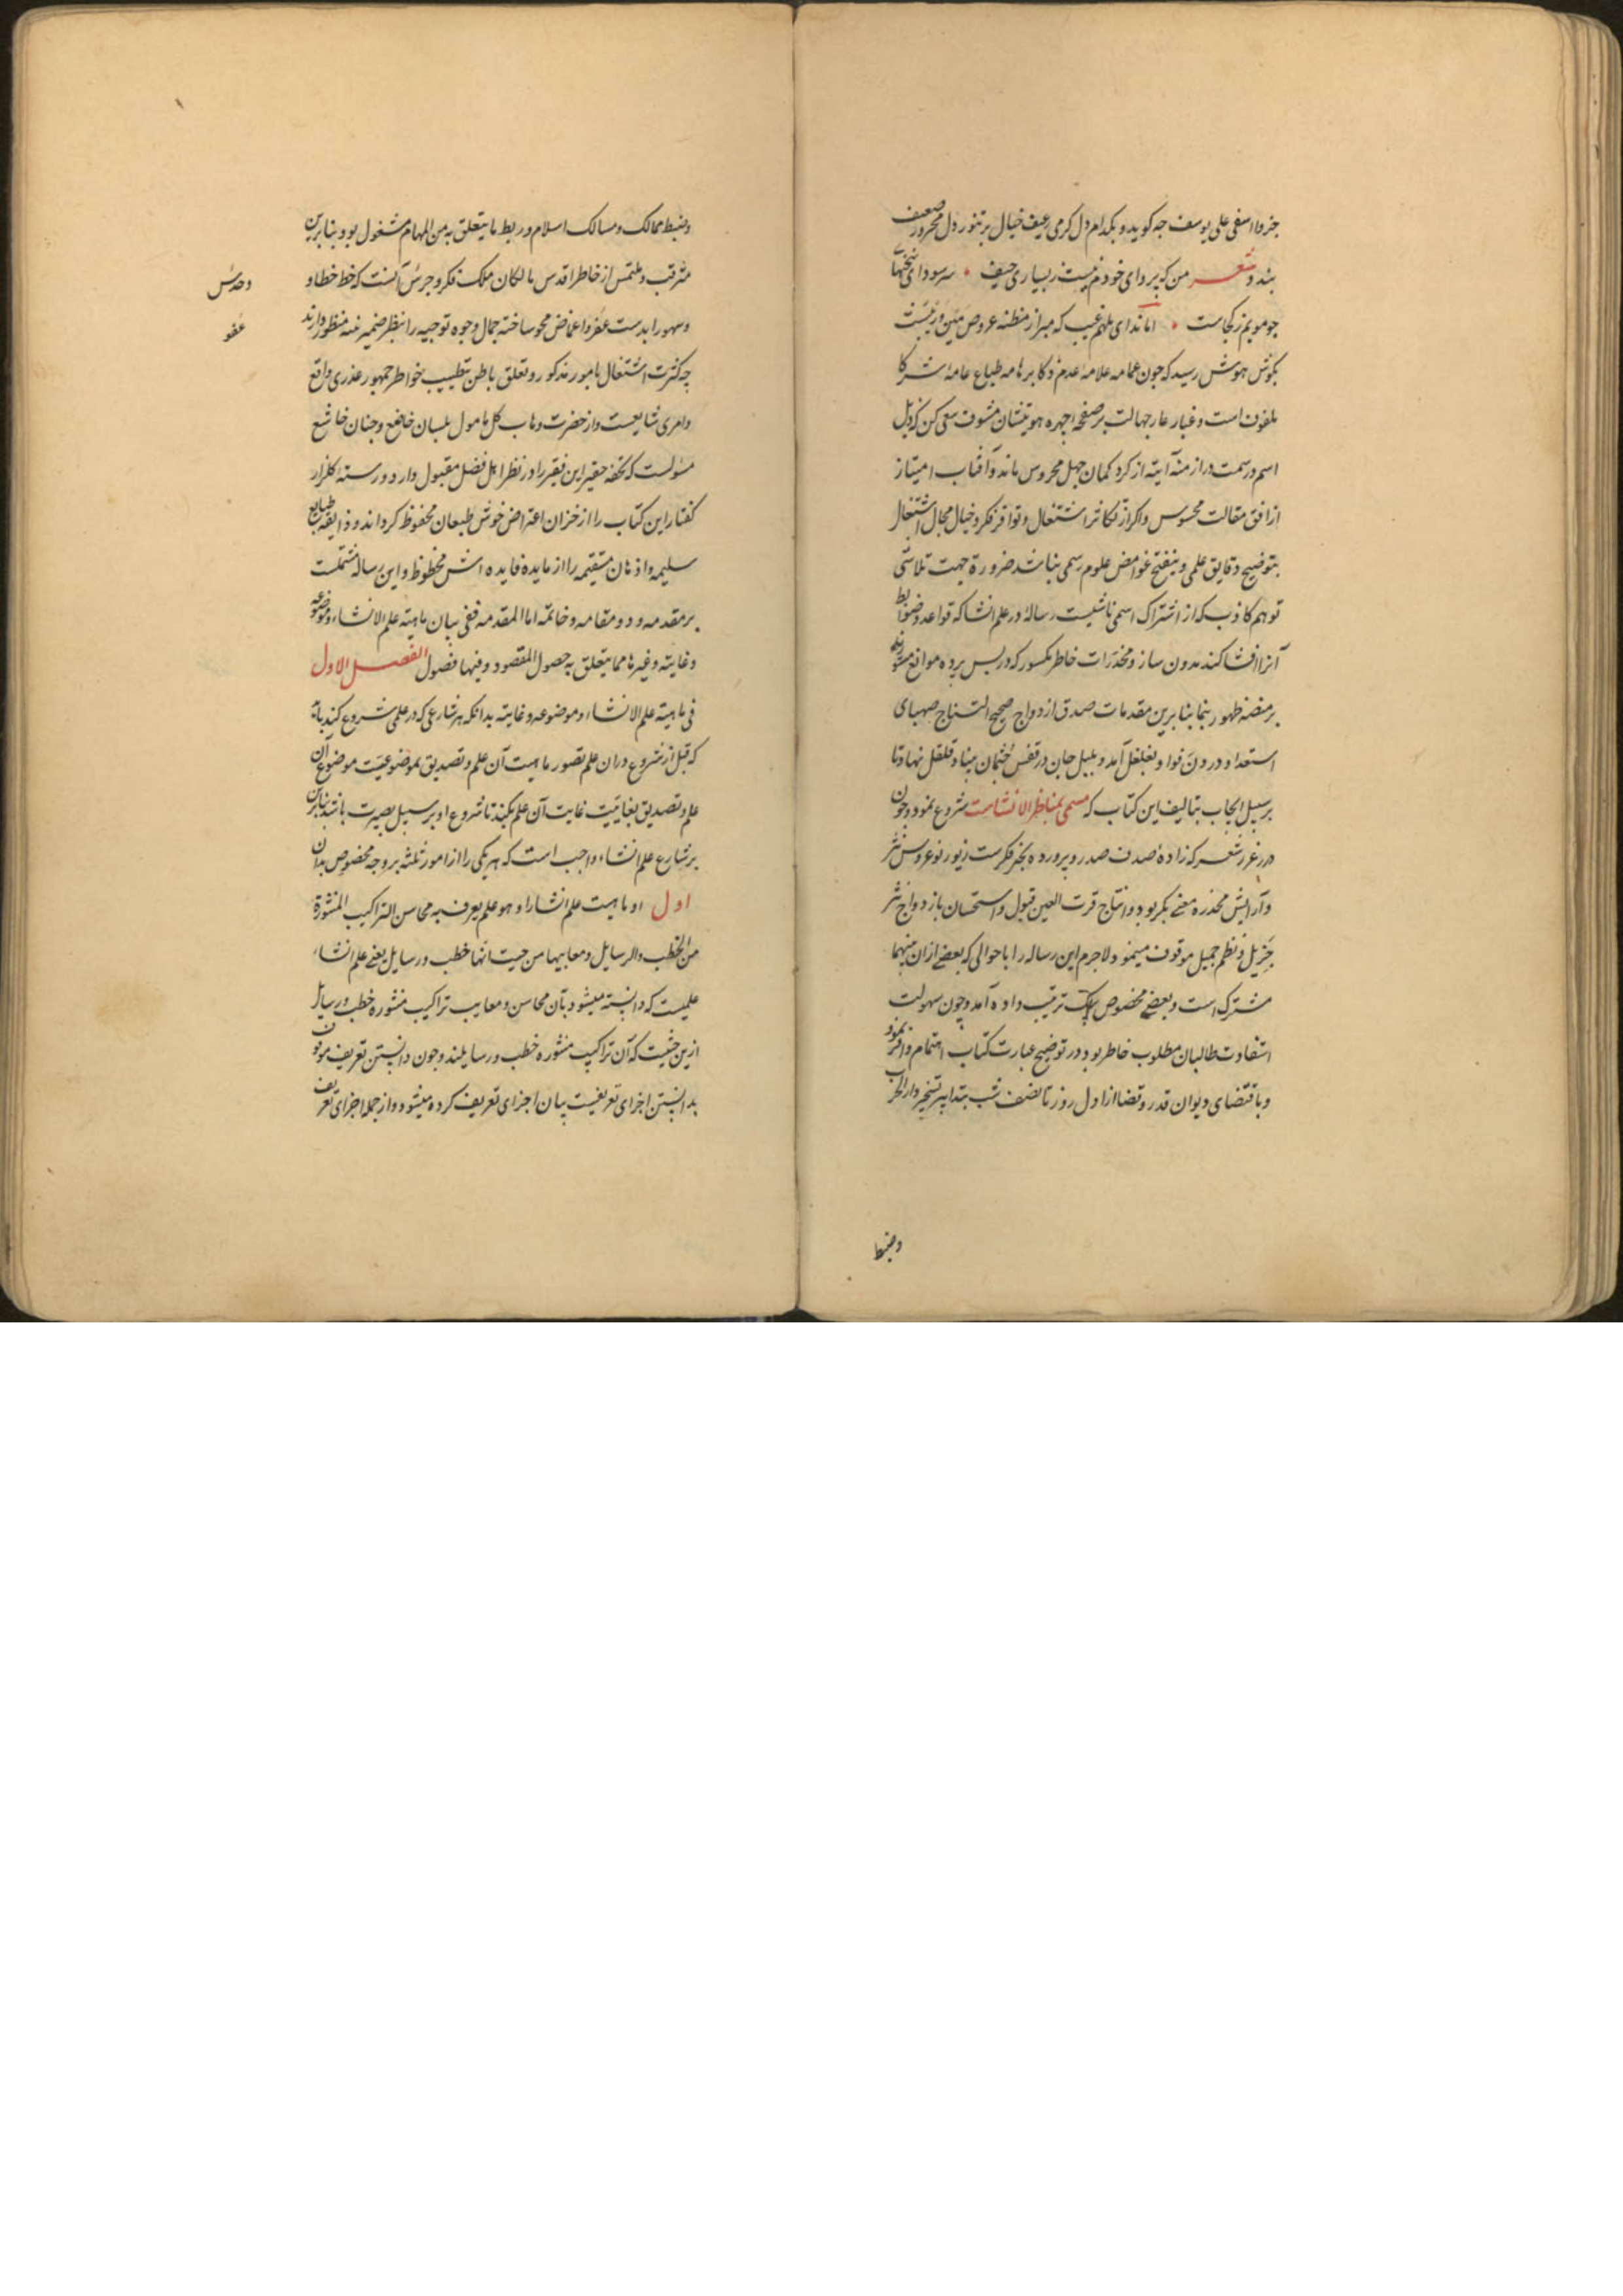 جز وا اسفی علی یوسف چه گوید و بکدام دل گرمی رغیف خیال بر تنور دل محرور ضعیف
بندد شعر من که پروای خودم نیست ز بسیاری حیف سر سودای سخنهای
چو مویم ز کجاست اما ندای ملهم غیب که مبرا از مظنه عروض مین و ریبست
بگوش هوش رسید که چون عمامه علامه عدم ذکا بر هامه طباع عامه شرکا
ملفوف است و غبار عار جهالت بر صفحه چهره هویتشان مشوف سعی کن که ذیل
اسم و رسمت در ازمنه آتیه از گرد گمان جهل محروس ماند و آفتاب امتیاز
از افق مقالت محسوس و اگر از تکاثر اشتغال و توافر فکر و خیال مجال اشتغال
بتوضیح دقایق علمی و بتفتیح غوامض علوم رسمی نباشد ضرورة جهت تلاشی
توهم کاذب که از اشتراک اسمی ناشیست رساله در علم انشا که قواعد و ضوابط
آنرا افشا کند مدون ساز و مخدرات خاطر مکسور که در پس پرده موانع مستورند
بر منصه ظهور بنما بنا برین مقدمات صدق ازدواج صحیح النتاج صهبای
استعداد در ون فواد بغلغل آمد و بلبل جان در قفس جثمان بیناد قلقل نهاد تا
بر سبیل ایجاب بتالیف این کتاب که مسمی بمناظر الانشاست شروع نمود و چون
درر غرر شعر که زاده صدف صدر و پرورده بحر فکرست زیور نو عروس نثر
و آرایش مخدره معنی بکر بود و انتاج قرت العین قبول و استحسان بازدواج نثر
جزیل و نظم جمیل موقوف مینمود لاجرم این رساله را باحوالی که بعضی ازان بینهما
مشترک است و بعضی مخصوص بیک ترتیب داده آمد و چون سهولت
استفادت طالبان مطلوب خاطر بود در توضیح عبارت کتاب اهتمام وافر نمود
و باقتضای دیوان قدر و قضا از اول روز تا نصف شب بتدابیر تسخیر دار الحرب
وضبط
وضبط ممالک و مسالک اسلام و ربط ما یتعلق به من المهام مشغول بود بنا برین
مترقب و ملتمس از خاطر اقدس مالکان ملک فکر و حرس آنست که خط خطا و
وحدس
وسهو را بدست عفو و اغماض محو ساخته جمال وجوه توجیه را بنظر ضمیر منظور دارند
عفو
چه کثرت اشتغال بامور مذکور و تعلق باطن بتطییب خواطر جمهور عذری واقع
وامری شایعست و از حضرت وهاب کل مامول بلسان خاضع و جنان خاشع
مسولست که تحفه حقیر این فقیر را در نظر اهل فضل مقبول دارد و رسته گلزار
گفتار این کتاب را از خزان اعتراض خوش طبعان محفوظ گرداند و ذایقه طبایع
سلیمه و اذهان مستقیمه را از مایده فایده اش محظوظ و این رساله مشتملست
بر مقدمه و دو مقامه و خاتمه اما المقدمه ففی بیان ماهیته علم الانشاء و موضوعه
و غایته و غیرها مما یتعلق به حصول المقصود و فیها فصول الفصل الاول
فی ماهیته علم الانشاء و موضوعه و غایته بدانکه هر شارعی که در علمی شروع کند باید
که قبل از شروع دران علم تصور ماهیت آن علم و تصدیق بموضوعیت موضوع آن
علم و تصدیق بغاییت غایت آن علم بکند تا شروع او بر سبیل بصیرت باشد بنا برین
بر شارع علم انشاء واجب است که هر یکی را از امور ثلثه بر وجه مخصوص بداند
اول او ماهیت علم انشا را و هو علم یعرف به محاسن التراکیب المنثورة
من الخطب و الرسایل و معایبها من حیث انها خطب و رسایل یعنی علم انشاء
علمیست که دانسته میشود بآن محاسن و معایب تراکیب منثوره خطب و رسایل
ازین حیثیت که آن تراکیب منثوره خطب و رسایلند و چون دانستن تعریف موقوف
بدانستن اجزای تعریفست بیان اجزای تعریف کرده میشود و از جمله اجزای تعریف